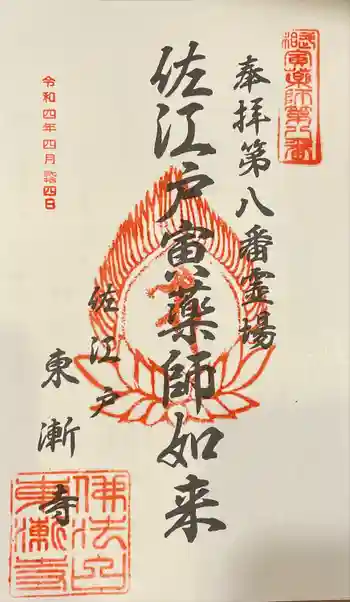 奉拝第八番霊場
佐江戸寅薬師如来
佐江戸
東漸寺
令和四年四月
四日
寅薬師第八番
佛法山
東漸寺